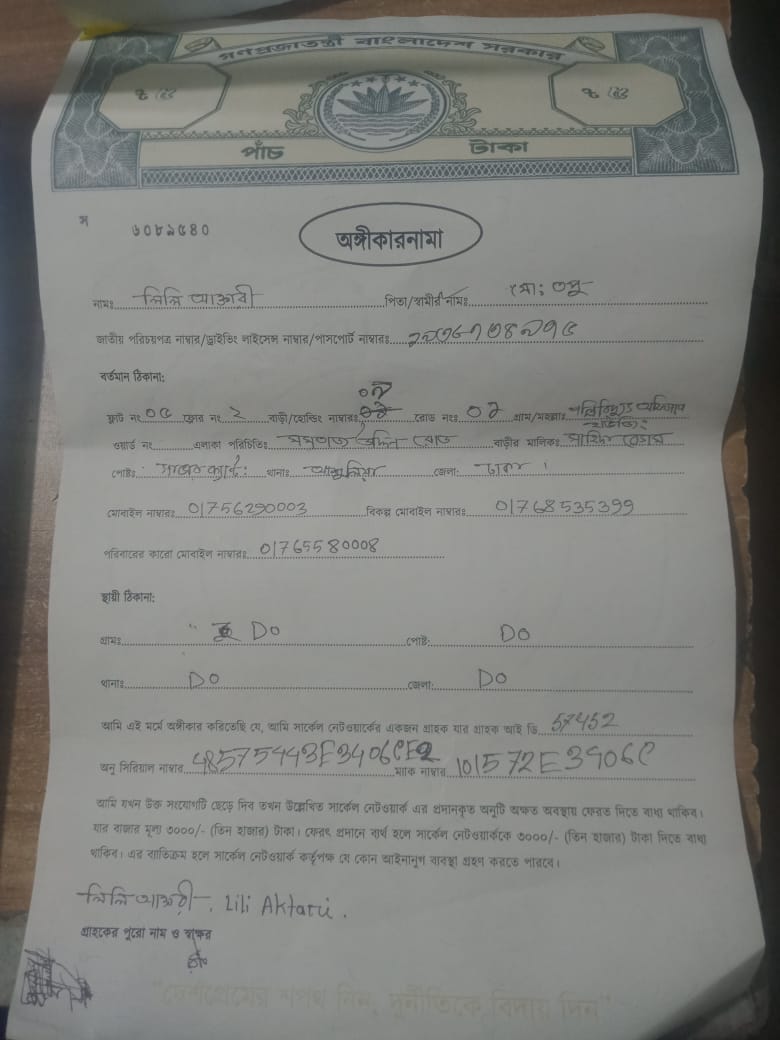 গণপ্রজাতন্ত্রী বাংলাদেশ সরকার
৳ ৫ ৳ ৫
পাঁচ টাকা
স ৬০৮৯৫৪০
অঙ্গীকারনামা
নামঃ লিলি আক্তারী পিতা/স্বামীর নামঃ মো: তপু
জাতীয় পরিচয়পত্র নাম্বার/ড্রাইভিং লাইসেন্স নাম্বার/পাসপোর্ট নাম্বারঃ
বর্তমান ঠিকানা:
ফ্লাট নং ০৫ ফ্লোর নং ২ বাড়ী/হোল্ডিং নাম্বারঃ রোড নংঃ ০২ গ্রাম/মহল্লাঃ পল্লিবিদ্যুত অফিসের
ওয়ার্ড নং এলাকা পরিচিতিঃ উদ্দিন রোড বাড়ীর মালিকঃ
পোষ্টঃ থানাঃ আশুলিয়া জেলা: ঢাকা ।
মোবাইল নাম্বারঃ 01756290003 বিকল্প মোবাইল নাম্বারঃ 01768535399
পরিবারের কারো মোবাইল নাম্বারঃ 01765580008
স্থায়ী ঠিকানা:
গ্রামঃ " Do পোষ্ট: Do
থানাঃ Do জেলা: Do
আমি এই মর্মে অঙ্গীকার করিতেছি যে, আমি সার্কেল নেটওয়ার্কের একজন গ্রাহক যার গ্রাহক আই ডি 57452
অনু সিরিয়াল নাম্বার 48575443E3406CE2 ম্যাক নাম্বার 101572E3406C
আমি যখন উক্ত সংযোগটি ছেড়ে দিব তখন উল্লেখিত সার্কেল নেটওয়ার্ক এর প্রদানকৃত অনুটি অক্ষত অবস্থায় ফেরত দিতে বাধ্য থাকিব।
যার বাজার মূল্য ৩০০০/- (তিন হাজার) টাকা। ফেরৎ প্রদানে ব্যর্থ হলে সার্কেল নেটওয়ার্ককে ৩০০০/- (তিন হাজার) টাকা দিতে বাধ্য
থাকিব। এর ব্যতিক্রম হলে সার্কেল নেটওয়ার্ক কর্তৃপক্ষ যে কোন আইনানুগ ব্যবস্থা গ্রহণ করতে পারবে।
লিলি আক্তারী. Lili Aktari.
গ্রাহকের পুরো নাম ও স্বাক্ষর
"দেশপ্রেমের শপথ নিন, দুর্নীতিকে বিদায় দিন"